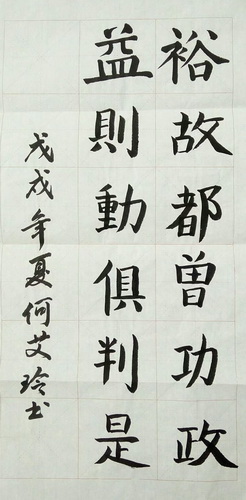 裕故都曾功政
益則動俱判是
戊戌年夏何艾玲书